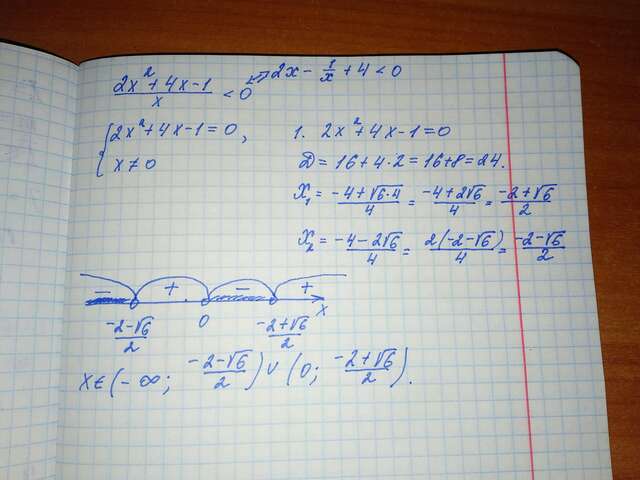 (2x² + 4x - 1)/x < 0 ⇔ 2x - 1/x + 4 < 0
{ 2x² + 4x - 1 = 0,
x ≠ 0
1. 2x² + 4x - 1 = 0
D = 16 + 4·2 = 16 + 8 = 24.
x₁ = (-4 + √6·4)/4 = (-4 + 2√6)/4 = (-2 + √6)/2
x₂ = (-4 - 2√6)/4 = 2(-2 - √6)/4 = (-2 - √6)/2
- + - + x
(-2 - √6)/2 0 (-2 + √6)/2
x ∈ (-∞; (-2 - √6)/2) ∪ (0; (-2 + √6)/2).